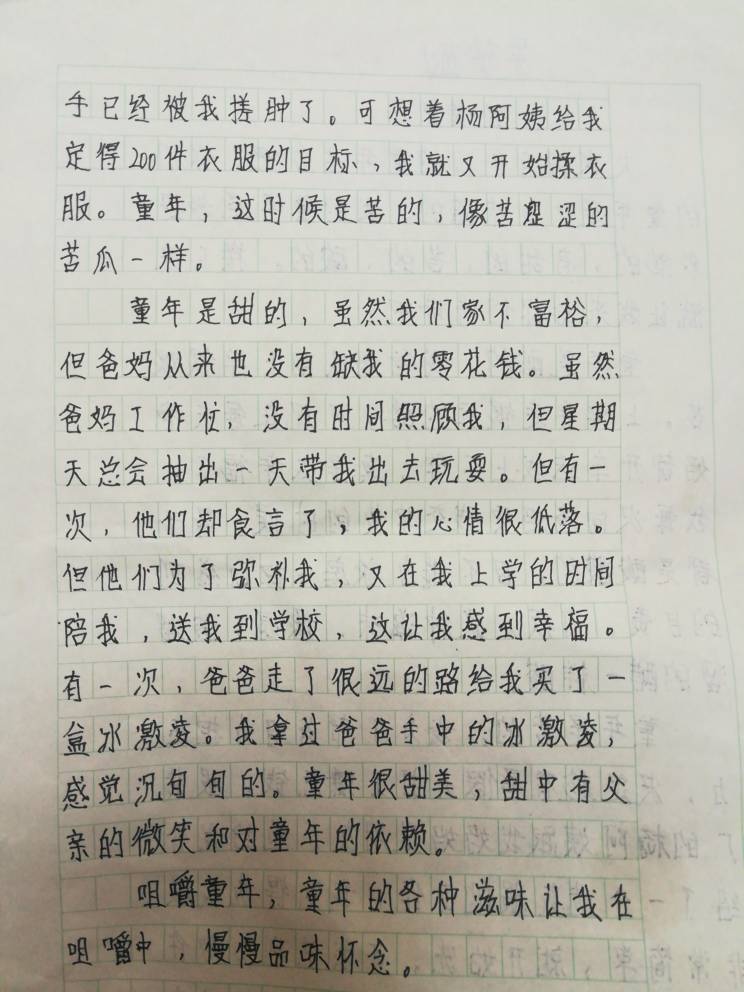 手已经被我搓肿了。可想着杨阿姨给我
定得200件衣服的目标，我就又开始揉衣
服。童年，这时候是苦的，像苦涩涩的
苦瓜一样。
童年是甜的，虽然我们家不富裕，
但爸妈从来也没有缺我的零花钱。虽然
爸妈工作忙，没有时间照顾我，但星期
天总会抽出一天带我出去玩耍。但有一
次，他们却食言了，我的心情很低落。
但他们为了弥补我，又在我上学的时间
陪我，送我到学校，这让我感到幸福。
有一次，爸爸走了很远的路给我买了一
盒冰激凌。我拿过爸爸手中的冰激凌，
感觉沉甸甸的。童年很甜美，甜中有父
亲的微笑和对童年的依赖。
咀嚼童年，童年的各种滋味让我在
咀嚼中，慢慢品味怀念。